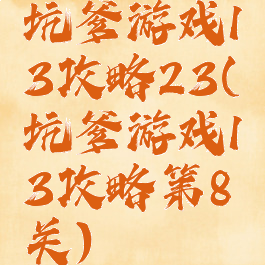 坑爹游戏1
3攻略23(
坑爹游戏1
3攻略第8
关)